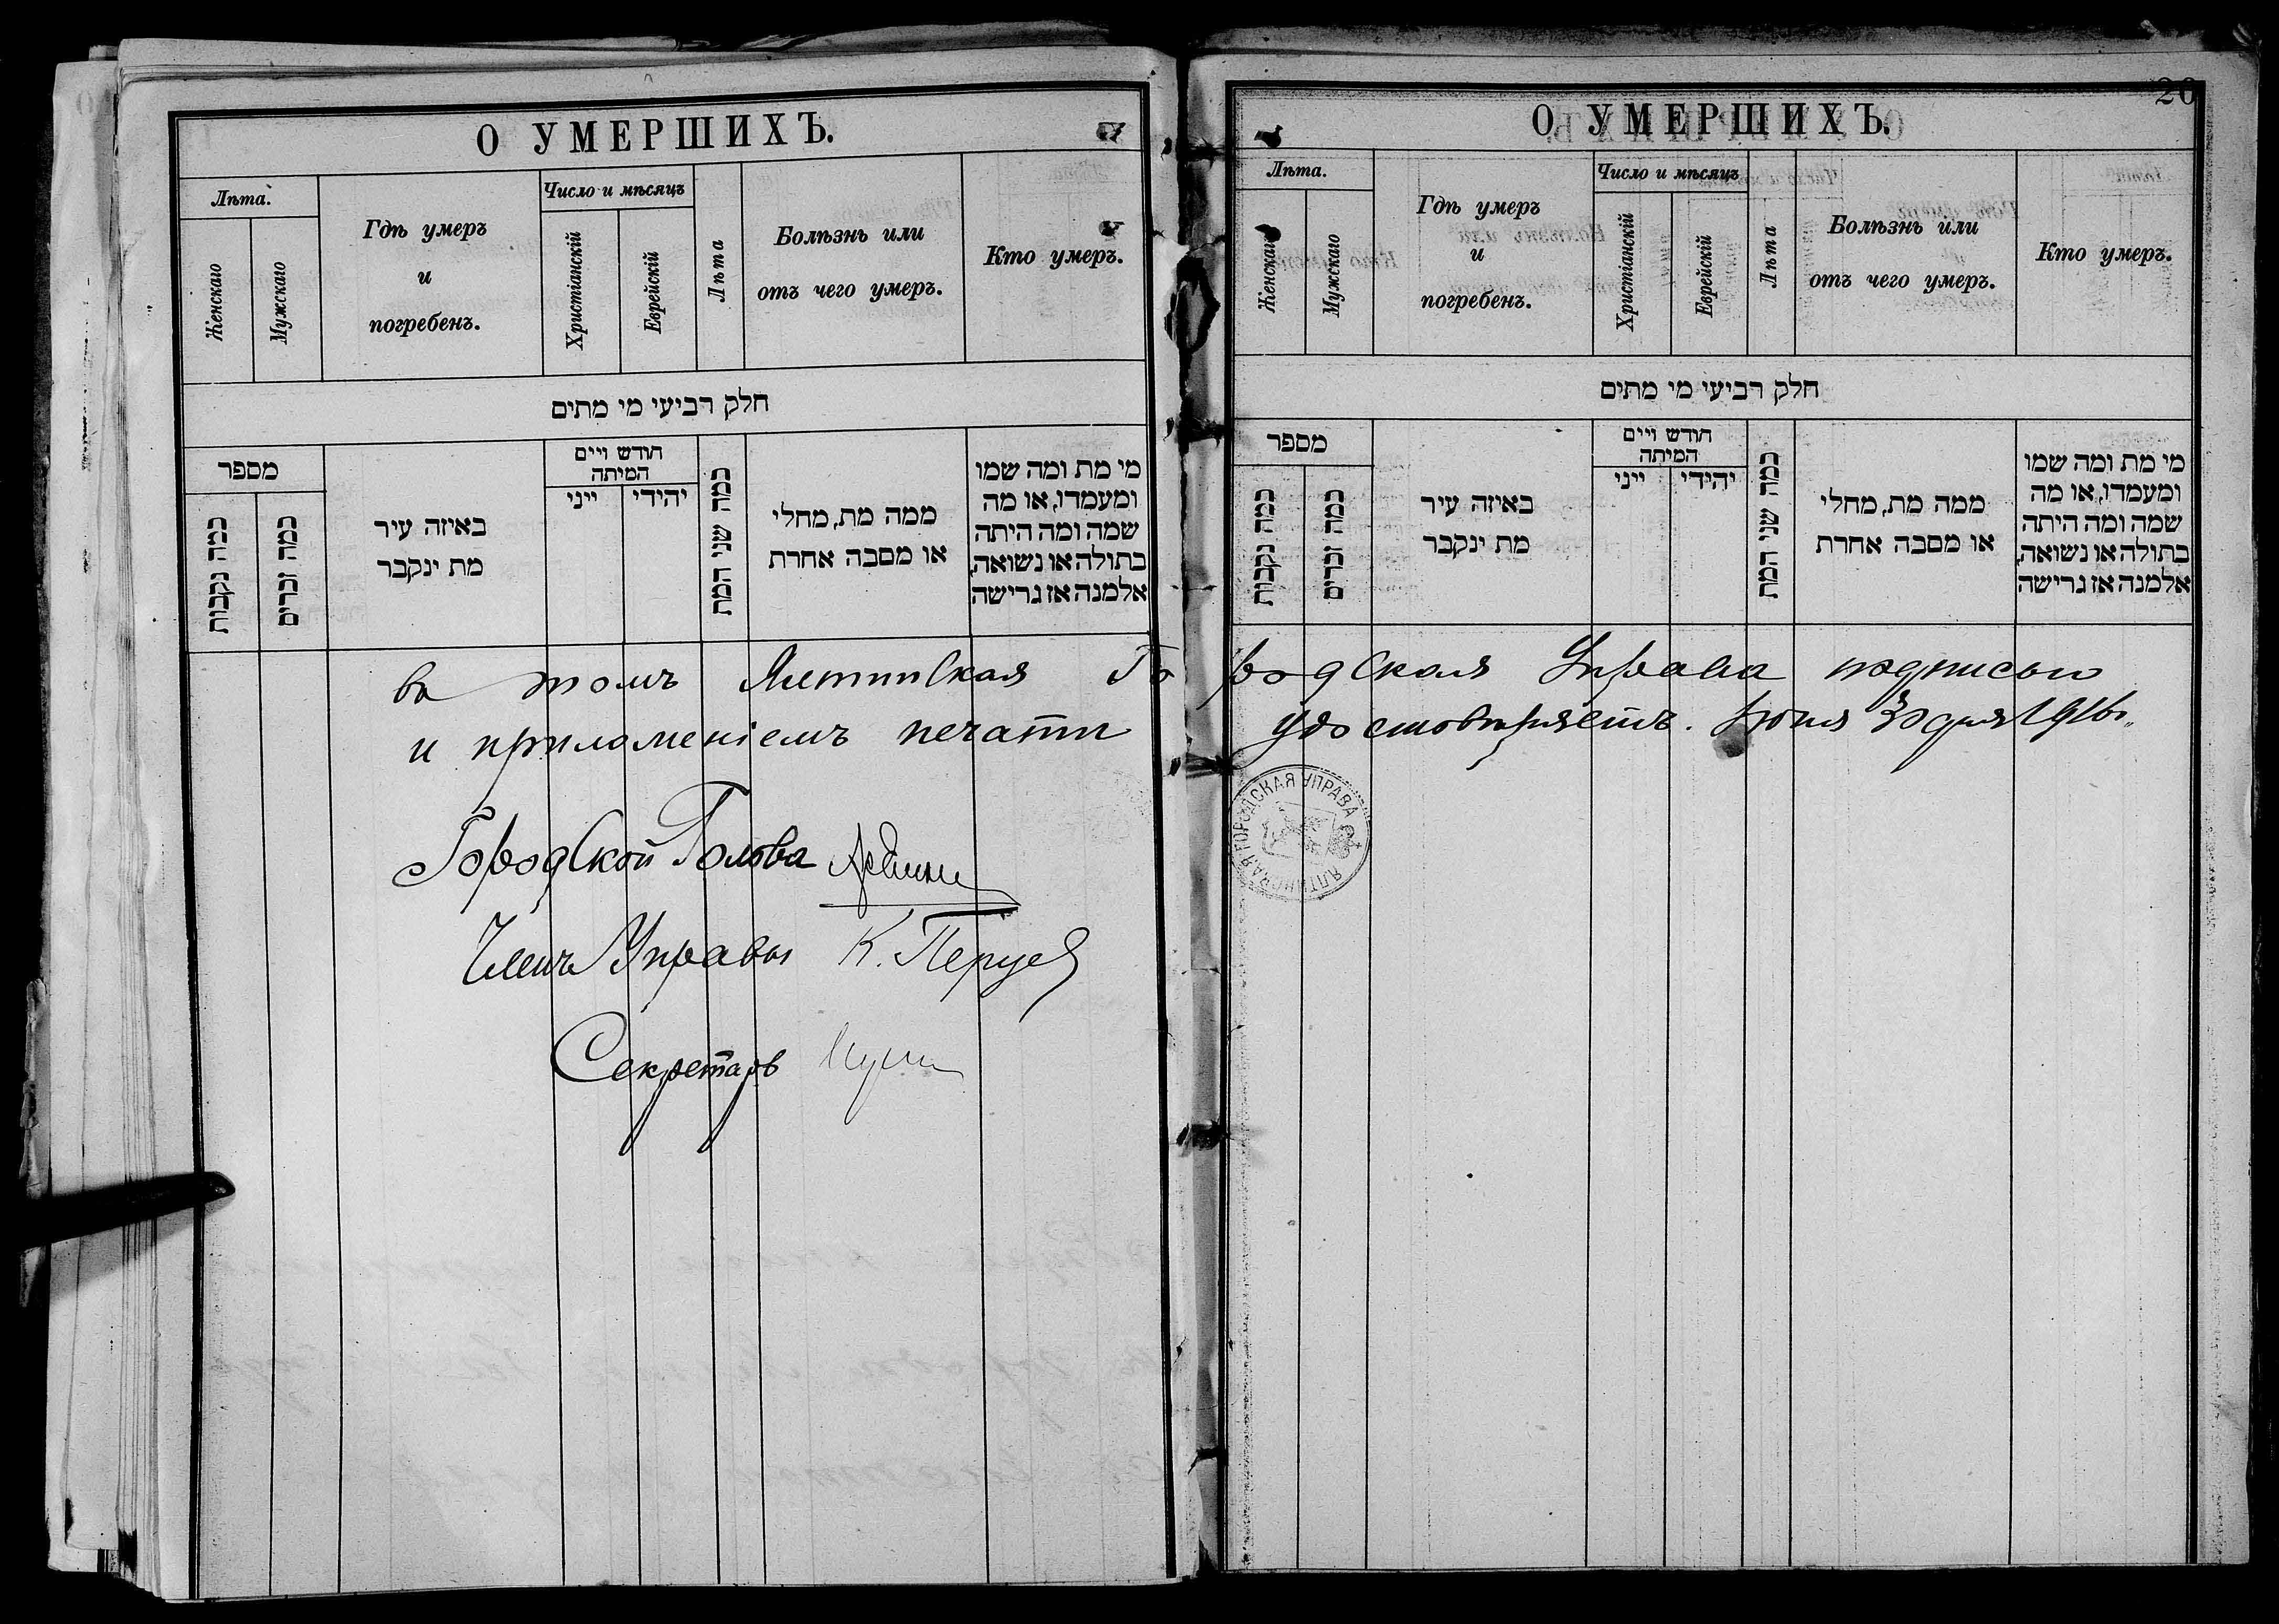 О УМЕРШИХЪ.
Лѣта.
Женскаго
Мужскаго
Гдѣ умеръ
и
погребенъ.
Число и мѣсяцъ
Христіанскій
Еврейскій
Лѣта
Болѣзнь или
отъ чего умеръ.
Кто умеръ.
חלק רביעי מי מתים
מספר
כמה נקבות
כמה זכרים
באיזה עיר
מת ינקבר
חודש ויים
המיתה
ייני
יהידי
כמה שני המת
ממה מת, מחלי
או מסבה אחרת
מי מת ומה שמו
ומעמדו, או מה
שמה ומה היתה
בתולה או נשואה,
אלמנה אז גרישה
20
О УМЕРШИХЪ.
Лѣта.
Женскаго
Мужскаго
Гдѣ умеръ
и
погребенъ.
Число и мѣсяцъ
Христіанскій
Еврейскій
Лѣта
Болѣзнь или
отъ чего умеръ.
Кто умеръ.
חלק רביעי מי מתים
מספר
כמה נקבות
כמה זכרים
באיזה עיר
מת ינקבר
חודש ויים
המיתה
ייני
יהידי
כמה שני המת
ממה מת, מחלי
או מסבה אחרת
מי מת ומה שמו
ומעמדו, או מה
שמה ומה היתה
בתולה או נשואה,
אלמנה אז גרישה
въ томъ Ялтинская Городская Управа подписью
и приложеніемъ печати удостовѣряетъ. Іюня 30 дня
Городской Голова
Членъ Управы К.
Секретарь
ЯЛТИНСКАЯ ГОРОДСКАЯ УПРАВА